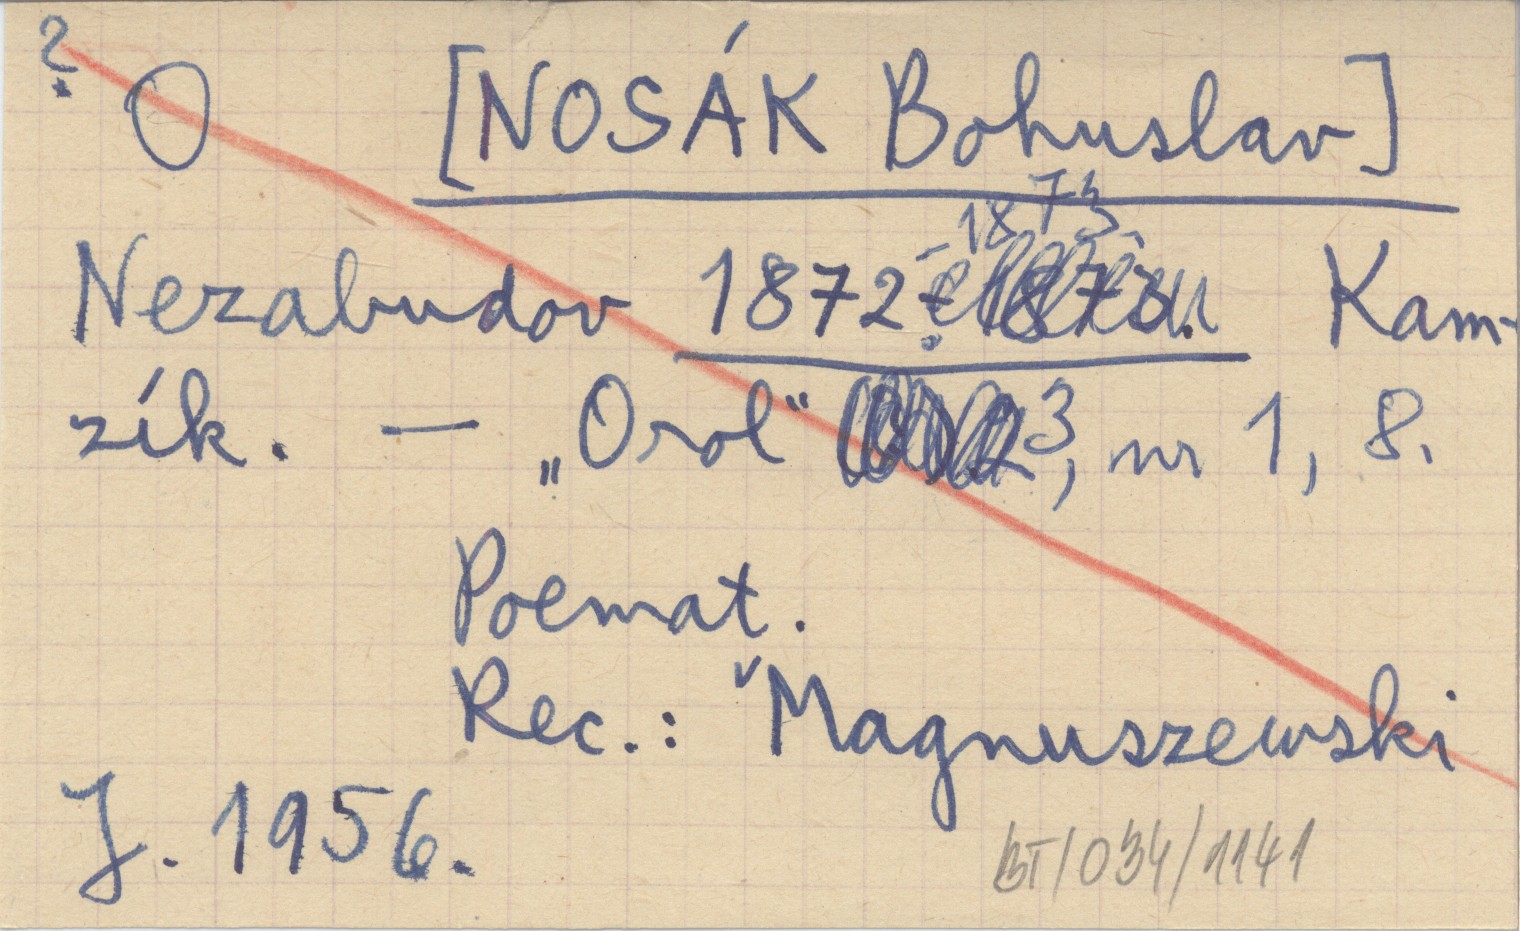 ?
O [NOSÁK Bohuslav]
Nezabudov 1872-1873. Kam-
zík. — „Orol" 3, nr 1, 8.
Poemat.
Rec.: Magnuszewski
J. 1956.
BT/034/1141